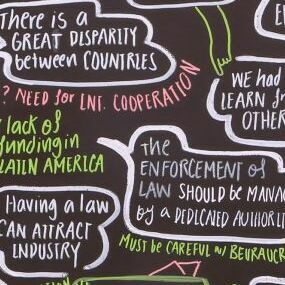 There is a
GREAT DISPARITY
between COUNTRIES
? NEED for INT. COOPERATION
WE had
LEARN
OTHER
lack of
funding in
LATIN AMERICA
The
ENFORCEMENT of
LAW SHOULD be MANA
by a DEDICATED AUTHORIT
Having a law
CAN ATTRACT
INDUSTRY
MUST be CAREFUL w/ BEURAUCR